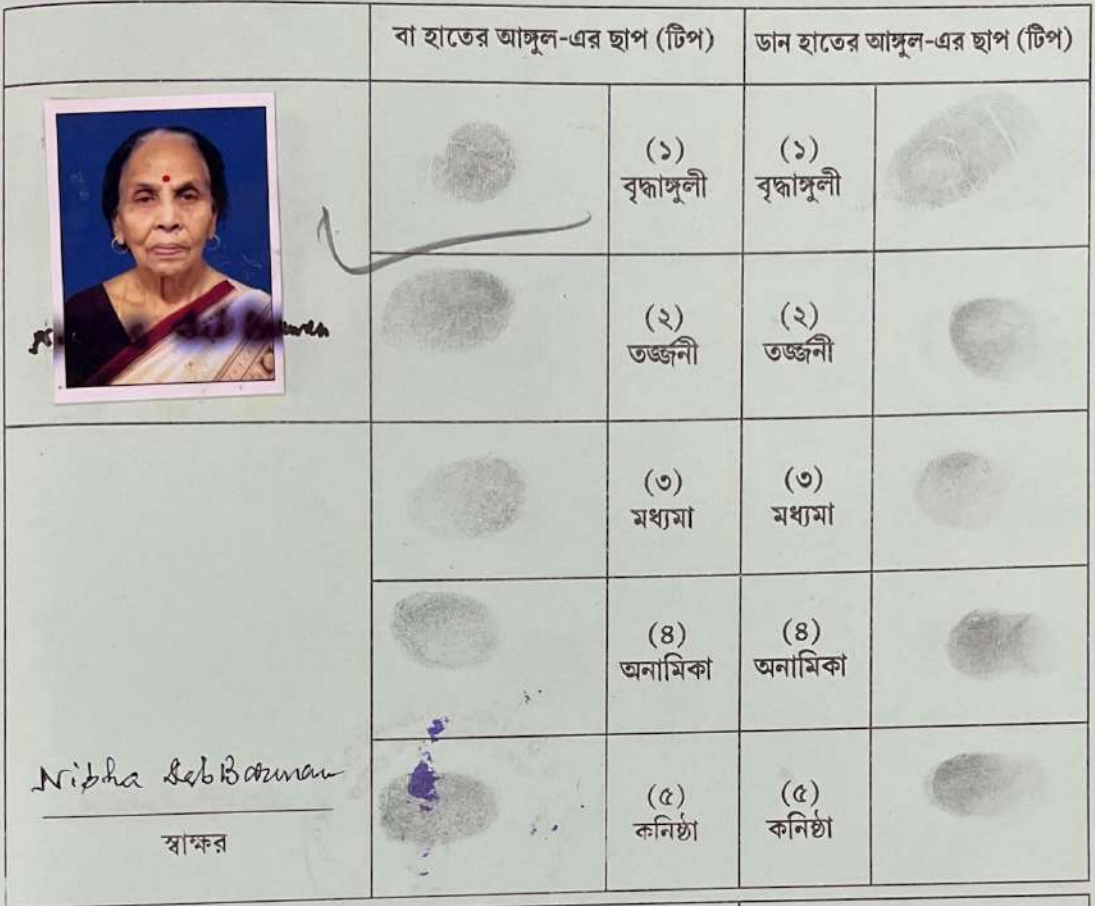 বা হাতের আঙ্গুল-এর ছাপ (টিপ)
ডান হাতের আঙ্গুল-এর ছাপ (টিপ)
(১)
বৃদ্ধাঙ্গুলী
(১)
বৃদ্ধাঙ্গুলী
(২)
তর্জ্জনী
(২)
তর্জ্জনী
(৩)
মধ্যমা
(৩)
মধ্যমা
(৪)
অনামিকা
(৪)
অনামিকা
(৫)
কনিষ্ঠা
(৫)
কনিষ্ঠা
Nibha Deb Barman
স্বাক্ষর